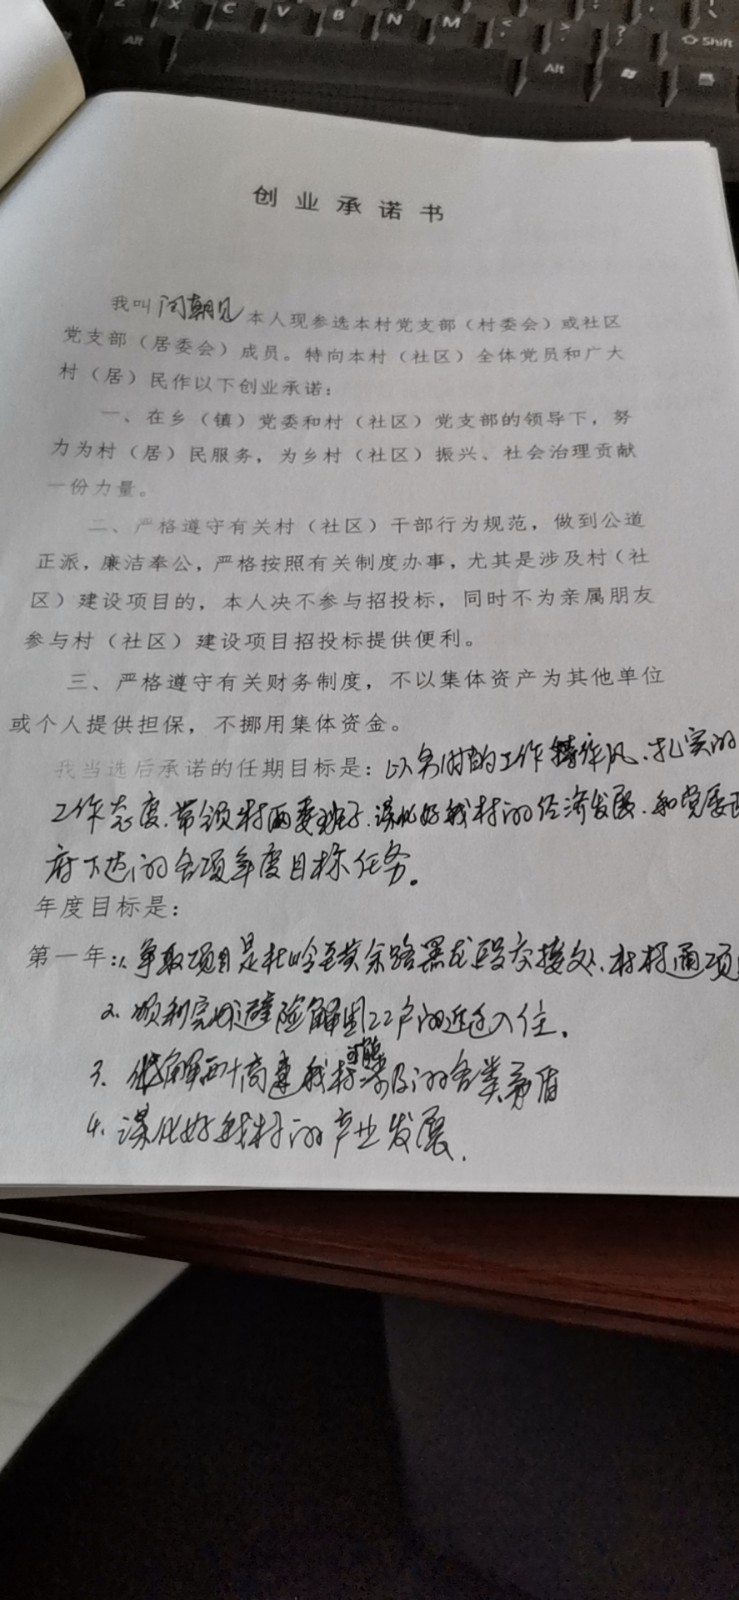 Z X C V B N M
Alt
Shift
Alt
创业承诺书
我叫闵朝见本人现参选本村党支部（村委会）或社区
党支部（居委会）成员。特向本村（社区）全体党员和广大
村（居）民作以下创业承诺：
一、在乡（镇）党委和村（社区）党支部的领导下，努
力为村（居）民服务，为乡村（社区）振兴、社会治理贡献
一份力量。
二、严格遵守有关村（社区）干部行为规范，做到公道
正派，廉洁奉公，严格按照有关制度办事，尤其是涉及村（社
区）建设项目的，本人决不参与招投标，同时不为亲属朋友
参与村（社区）建设项目招投标提供便利。
三、严格遵守有关财务制度，不以集体资产为其他单位
或个人提供担保，不挪用集体资金。
我当选后承诺的任期目标是：以务的工作作风、扎实的
工作态度、带领村两委班子、深化好我村的经济发展、和党委政
府下达的各项年度目标任务。
年度目标是：
第一年：1、争取项目是杜岭至黄余路黑龙段交接处、村村通项
2. 顺利完成避险解困22户的迁入住.
3. 化解高速我村涉及的各类矛盾
4. 深化好我村的产业发展.